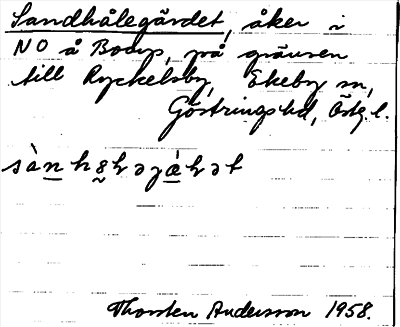 Sandhålegärdet, åker i
NO å Boarp, på gränsen
till Ryckelsby, Ekeby sn,
Göstrings hd, Östg. l.
Thorsten Andersson 1958.